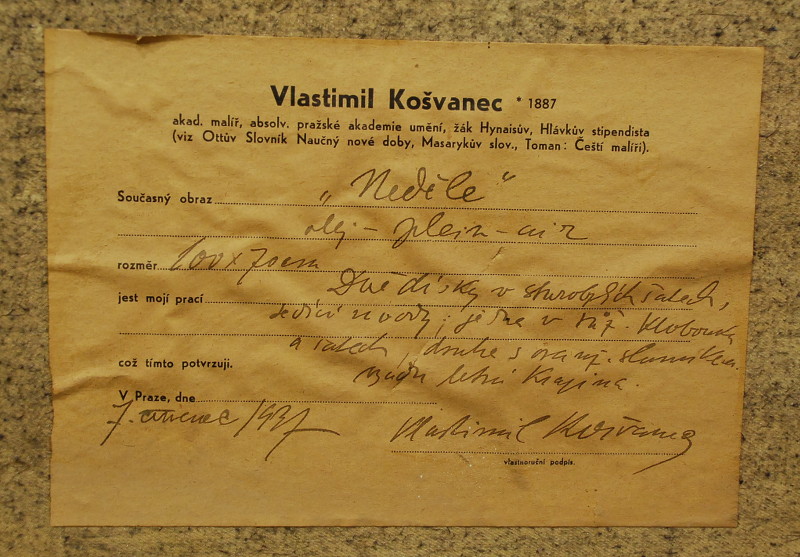 Vlastimil Košvanec * 1887
akad. malíř, absolv. pražské akademie umění, žák Hynaisův, Hlávkův stipendista
(viz Ottův Slovník Naučný nové doby, Masarykův slov., Toman: Čeští malíři).
Současný obraz „Neděle“
olej - plein - air
rozměr 100 x 70 cm
jest mojí prací Dvě dívky v šatech,
sedící u vody, jedna v růž. klobouku
a šatech, druhá s oranž.
což tímto potvrzuji.
vzadu letní krajina.
V Praze, dne
7. červenec 1937
Vlastimil Košvanec
vlastnoruční podpis.